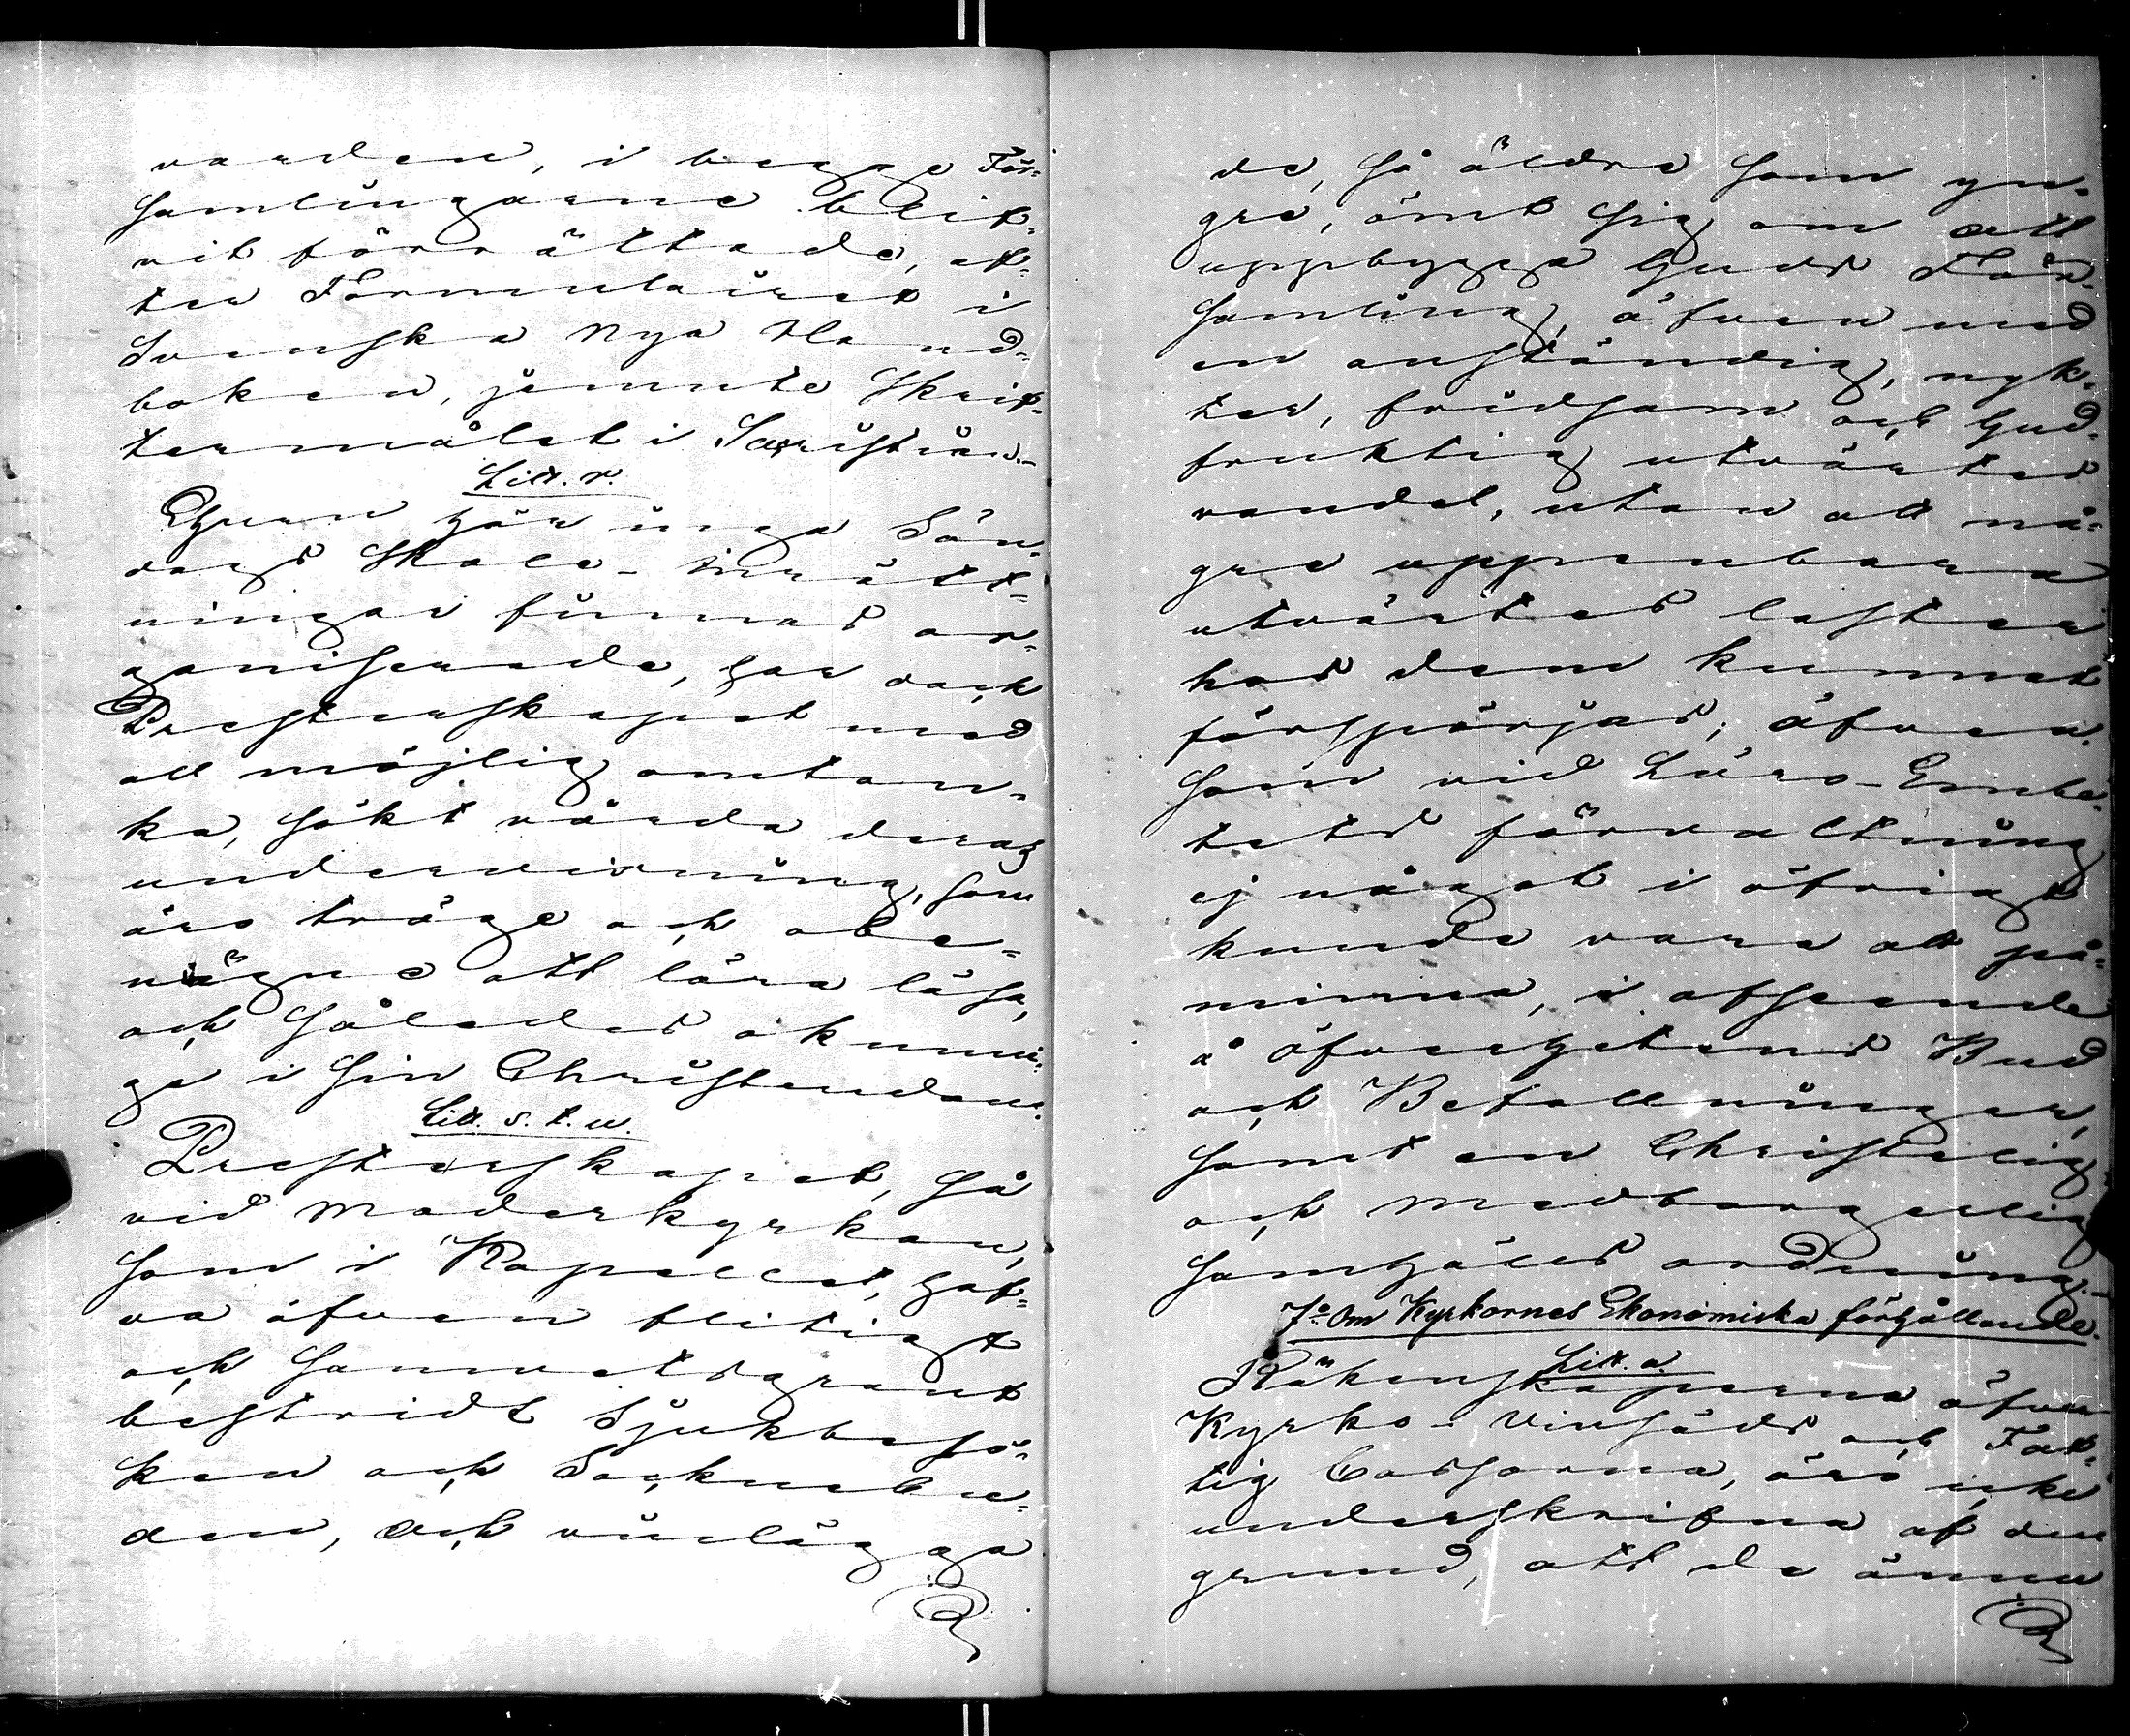 varden, i begge För-
samlingarne blif-
vit förrättade, ef-
ter Formuläiret i
Svenska Nya Hand-
boken, jemnte Skrif-
termålet i Sacristian.-
Litt. r.
Ehuru här inga Sön-
dags Skole-inrätt-
ningar finnas or-
ganiserade, har dock
Presterskapet med
all möjlig omtan-
ka, sökt vårda deras
undervisning, som
äro tröge och obe-
nägne att lära läsa,
och således okunni-
ge i sin Christendom.
Litt. s. t. u.
Presterskapet, så
vid Moderkyrkan,
som i Kapellet, haf-
va äfven flitigt
och samvetsgrant
bestridt Sjukbesö-
ken och Socknebu-
den, och vinlägga
de, så äldre som yn-
gre, ömt sig om att
uppbygga Guds För-
samling, äfven med
en anständig, nyk-
ter, fridsam och Gud-
fruktig utvärtes
vandel, utan att nå-
gre uppenbara
utvärtes laster
hos dem kunnat
förspörjas; äfven-
som vid Läro-Embe-
tets förvaltning
ej något i öfrigt
kunde vara att på-
minna, i afseende
å Öfverhetens Bud
och Befallningar,
samt en Christelig
och Medborgerlig
samhälls ordning.-
7:o Om Kyrkornes Ekonomiska förhållande.
Litt. a.
Räkenskaperna öfver
Kyrko- Vinsäds och Fat-
tig Cassorna, äro icke
underskrifna af den
grund, att de ännu